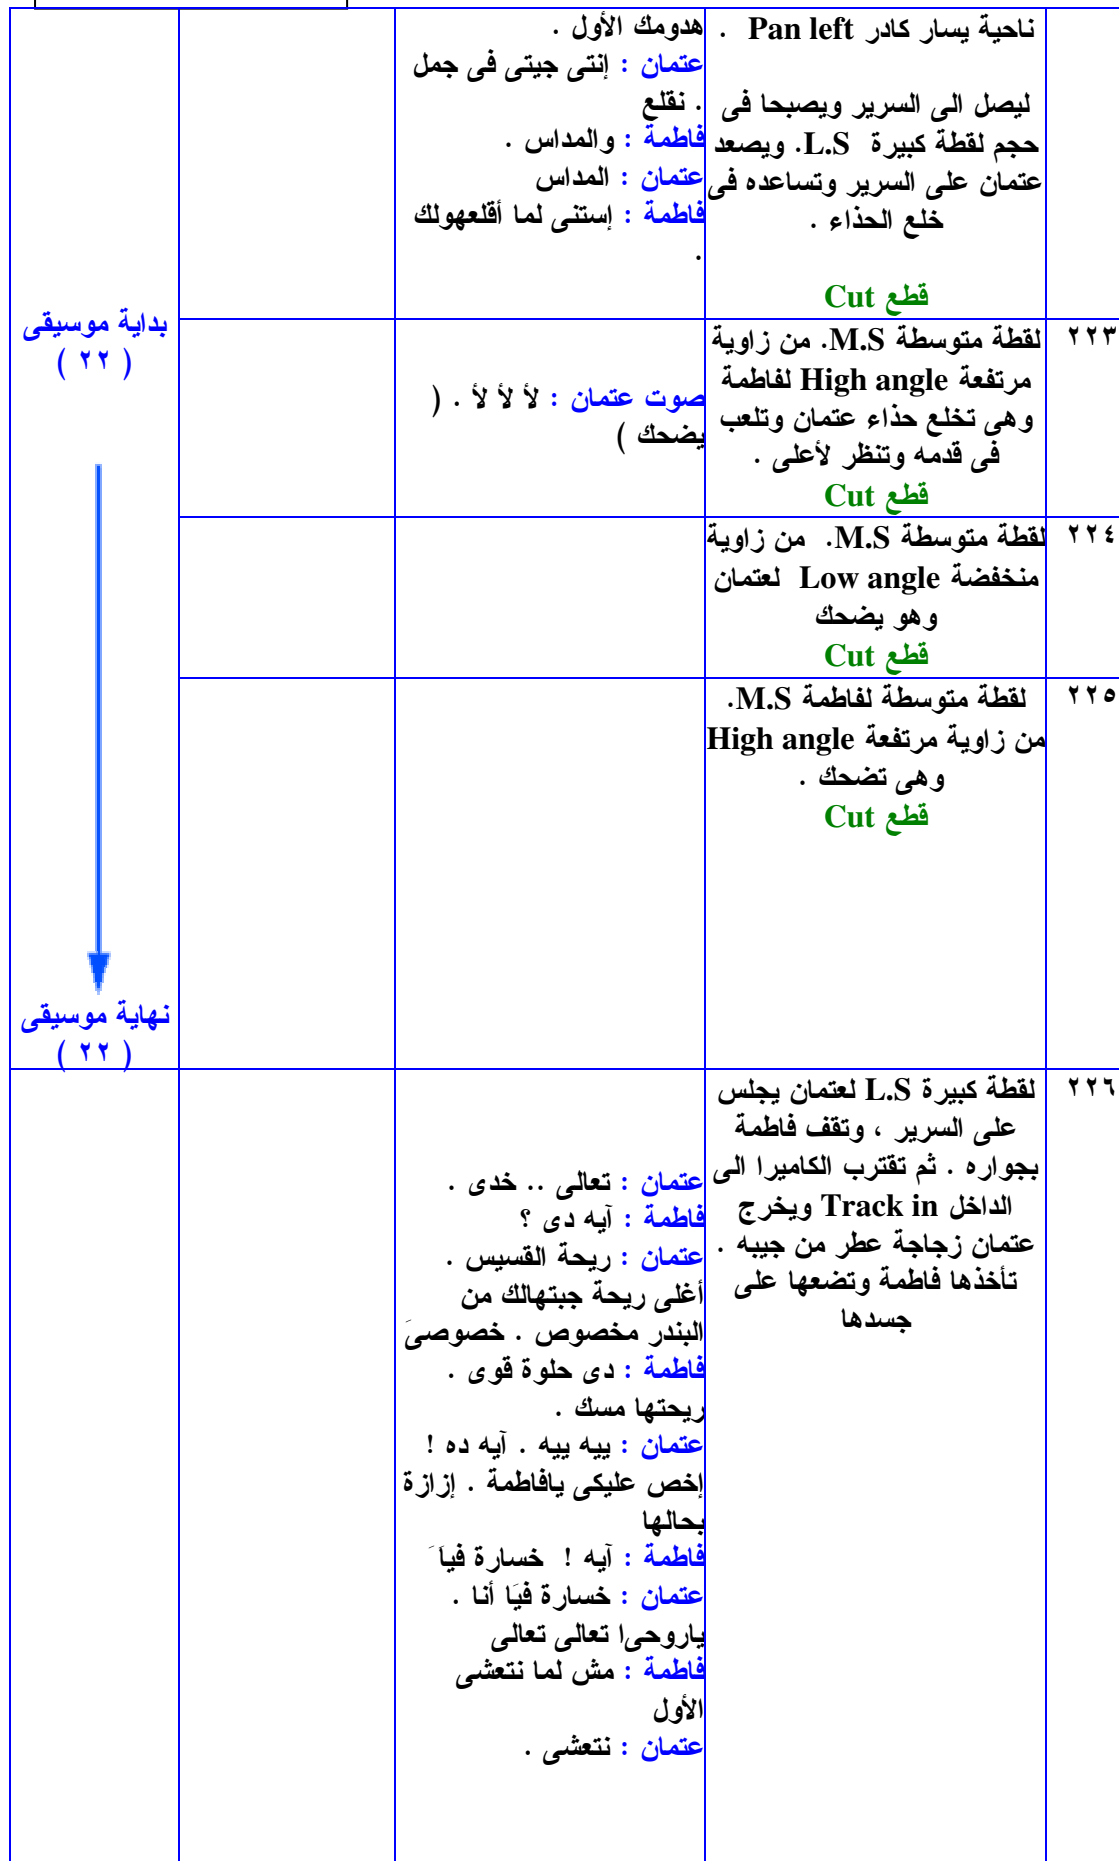 ناحية يسار كادر Pan left .
ليصل الى السرير ويصبحا فى
حجم لقطة كبيرة L.S. ويصعد
عتمان على السرير وتساعده فى
خلع الحذاء .
قطع Cut
هدومك الأول .
عتمان : إنتى جيتى فى جمل
. نقلع
فاطمة : والمداس .
عتمان : المداس
فاطمة : إستنى لما أقلعهولك
.
بداية موسيقى
( ٢٢ )
٢٢٣
لقطة متوسطة M.S. من زاوية
مرتفعة High angle لفاطمة
وهى تخلع حذاء عتمان وتلعب
فى قدمه وتنظر لأعلى .
قطع Cut
صوت عتمان : لأ لأ لأ . (
يضحك )
٢٢٤
لقطة متوسطة M.S. من زاوية
منخفضة Low angle لعتمان
وهو يضحك
قطع Cut
٢٢٥
لقطة متوسطة لفاطمة M.S.
من زاوية مرتفعة High angle
وهى تضحك .
قطع Cut
نهاية موسيقى
( ٢٢ )
٢٢٦
لقطة كبيرة L.S لعتمان يجلس
على السرير ، وتقف فاطمة
بجواره . ثم تقترب الكاميرا الى
الداخل Track in ويخرج
عتمان زجاجة عطر من جيبه .
تأخذها فاطمة وتضعها على
جسدها
عتمان : تعالى .. خدى .
فاطمة : آيه دى ؟
عتمان : ريحة القسيس .
أغلى ريحة جبتهالك من
البندر مخصوص . خصوصىَ
فاطمة : دى حلوة قوى .
ريحتها مسك .
عتمان : ييه ييه . آيه ده !
إخص عليكى يافاطمة . إزازة
بحالها
فاطمة : آيه ! خسارة فياَ َ
عتمان : خسارة فيَا أنا .
ياروحىا تعالى تعالى
فاطمة : مش لما نتعشى
الأول
عتمان : نتعشى .